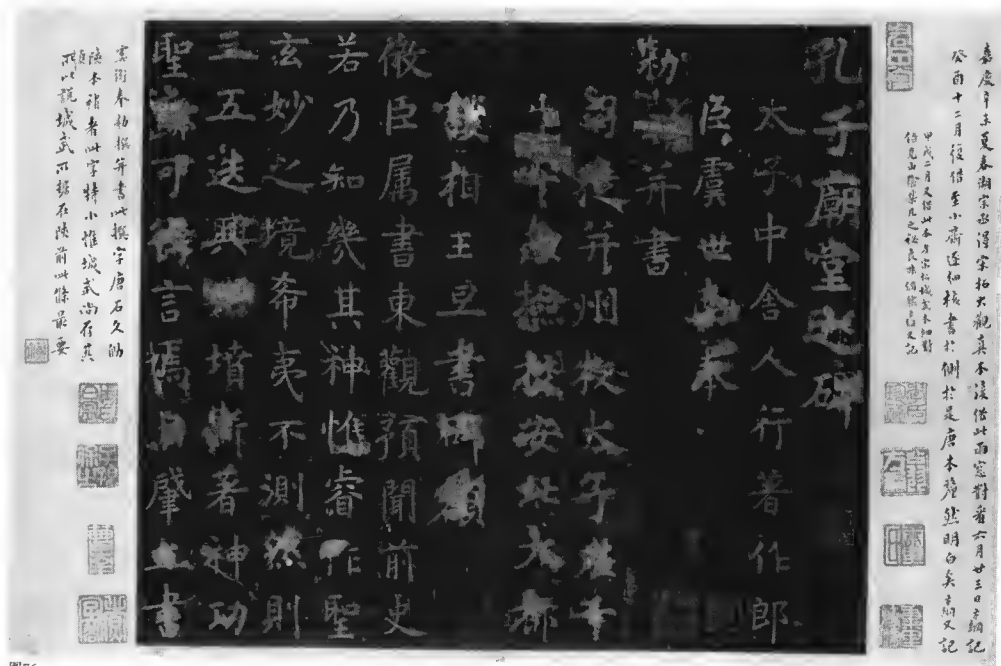 嘉慶辛未夏春湖宗丞得宋拓大觀真本復借此雨窓對看六月廿三日方綱記
癸酉十二月復借至小齋逐細核書於側於是唐本釐然明白矣方綱又記
甲戌二月又借此本与宋拓城武本細對
信是山陰棐几之祕良非偶然方綱又記
孔子廟堂之碑
太子中舍人行著作郎
臣虞世南奉
勑撰并書
司徒并州牧太子左千
牛率兼撿挍安北大都
護相王旦書碑額
微臣属書東觀預聞前史
若乃知幾其神惟睿作聖
玄妙之境希夷不測然則
三五迭興典墳斯著神功
聖迹可得言焉自肇立書
虞銜奉勑撰并書此撰字唐石久泐
陝本補者此字特小惟城武尚存其
所以說城武所據在陝前此條最要
圖76